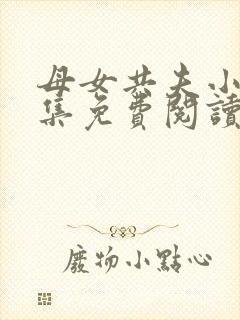 母女共夫小
集免費閱讀
廢物小點心